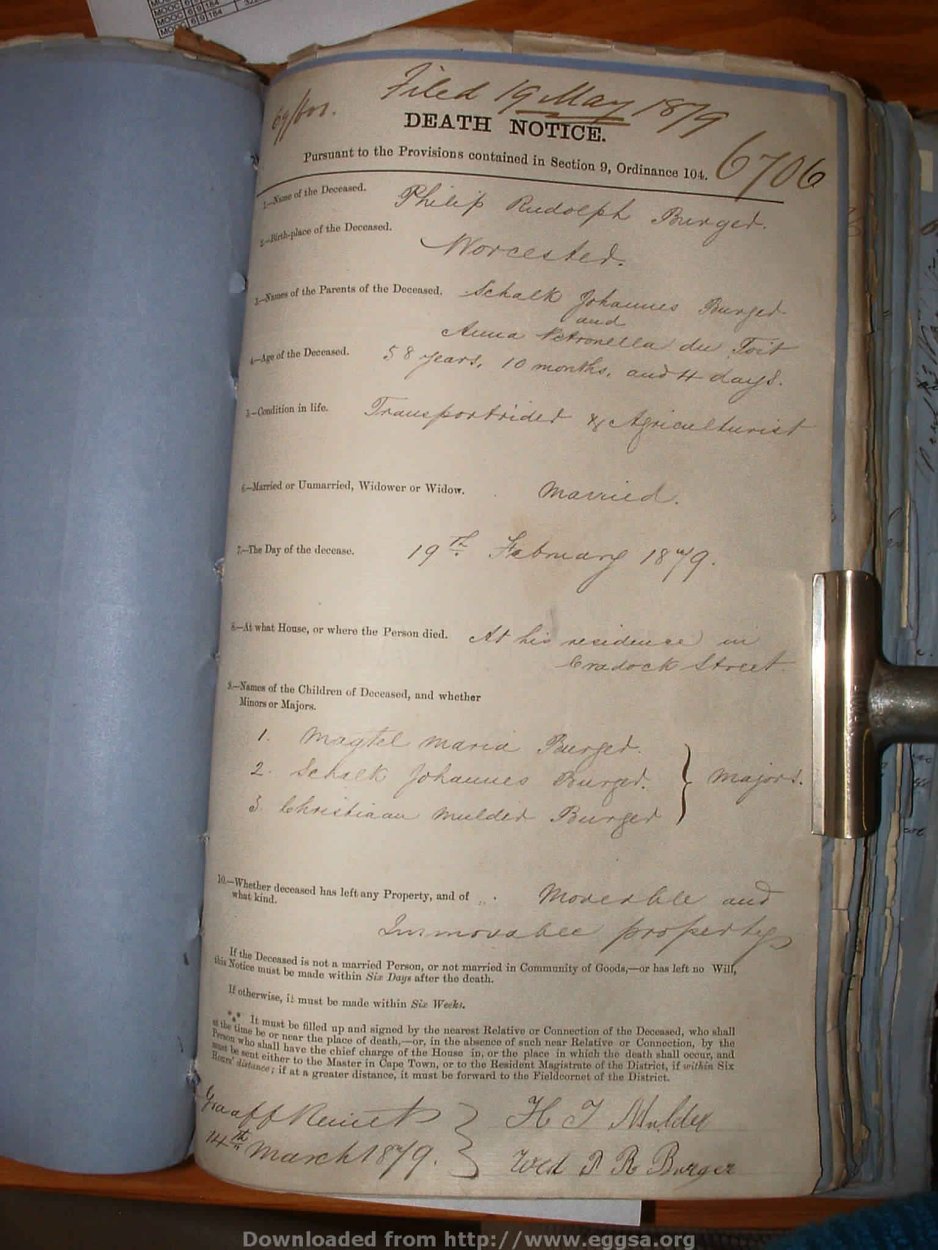 MOOC 6/9/184
Filed 19 May 1879
DEATH NOTICE.
6706
Pursuant to the Provisions contained in Section 9, Ordinance 104.
1.—Name of the Deceased. Philip Rudolph Burger.
2.—Birth-place of the Deceased. Worcester.
3.—Names of the Parents of the Deceased. Schalk Johannes Burger
and
Anna Petronella du Toit
4.—Age of the Deceased. 58 years, 10 months, and 4 days.
5.—Condition in life. Transportrider & Agriculturist
6.—Married or Unmarried, Widower or Widow. Married.
7.—The Day of the decease. 19th February 1879.
8.—At what House, or where the Person died. At his residence in
Cradock Street
9.—Names of the Children of Deceased, and whether
Minors or Majors.
1. Magtel Maria Burger.
2. Schalk Johannes Burger. } Majors.
3. Christiaan Mulder Burger
10.—Whether deceased has left any Property, and of
what kind. Moverable and
Immovable property
If the Deceased is not a married Person, or not married in Community of Goods,—or has left no Will,
this Notice must be made within Six Days after the death.
If otherwise, it must be made within Six Weeks.
*** It must be filled up and signed by the nearest Relative or Connection of the Deceased, who shall
at the time be or near the place of death,—or, in the absence of such near Relative or Connection, by the
Person who shall have the chief charge of the House in, or the place in which the death shall occur, and
must be sent either to the Master in Cape Town, or to the Resident Magistrate of the District, if within Six
Hours' distance; if at a greater distance, it must be forward to the Fieldcornet of the District.
Graaff Reinet } H J Mulder
14th March 1879. Wed P R Burger
Downloaded from http://www.eggsa.org